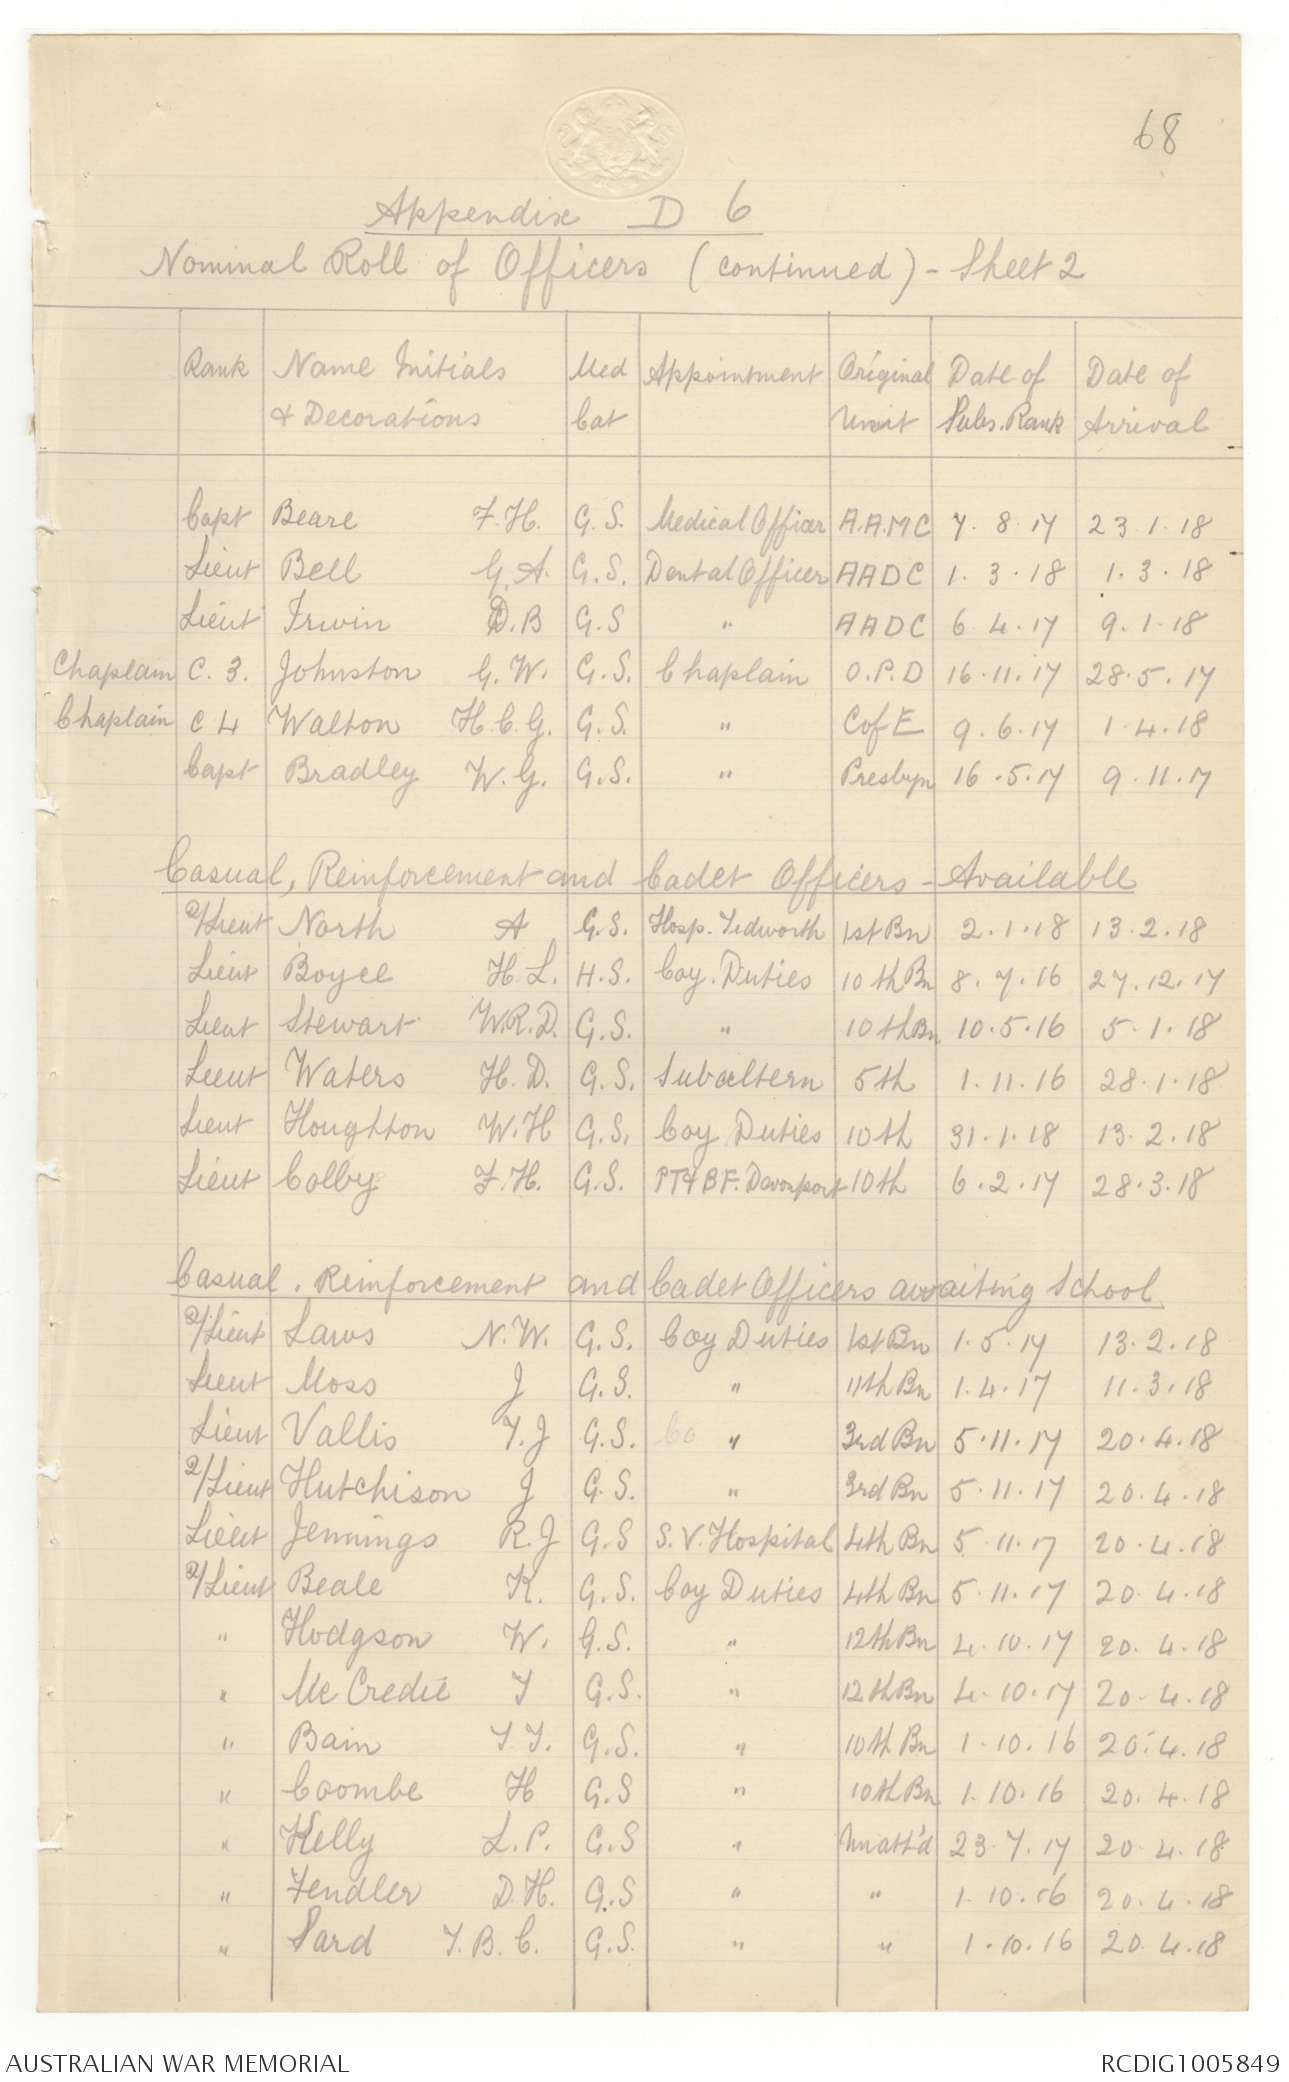 68
Appendix D 6
Nominal Roll of Officers (continued) - Sheet 2
Rank Name Initials Med Appointment Original Date of Date of
& Decorations Cat Unit Subs. Rank Arrival
Capt Beare F.H. G.S. Medical Officer A.A.M.C 7.8.17 23.1.18
Lieut Bell G.A. G.S. Dental Officer AADC 1.3.18 1.3.18
Lieut Irwin D.B G.S " AADC 6.4.17 9.1.18
Chaplain C.3. Johnston G.W. G.S. Chaplain O.P.D 16.11.17 28.5.17
Chaplain C 4 Walton H.C.G. G.S. " C of E 9.6.17 1.4.18
Capt Bradley W.G. G.S. " Presbyn 16.5.17 9.11.17
Casual, Reinforcement and Cadet Officers - Available
2/Lieut North A G.S. Hosp. Tidworth 1st Bn 2.1.18 13.2.18
Lieut Boyce H.L. H.S. Coy. Duties 10th Bn 8.7.16 27.12.17
Lieut Stewart W.R.D. G.S. " 10th Bn 10.5.16 5.1.18
Lieut Waters H.D. G.S. Subaltern 5th 1.11.16 28.1.18
Lieut Houghton W.H G.S. Coy Duties 10th 31.1.18 13.2.18
Lieut Colby F.H. G.S. PT&BF. Davonport 10th 6.2.17 28.3.18
Casual, Reinforcement and Cadet Officers awaiting School
2/Lieut Laws N.W. G.S. Coy Duties 1st Bn 1.5.17 13.2.18
Lieut Moss J G.S. " 11th Bn 1.4.17 11.3.18
Lieut Vallis T.J G.S. Co " 3rd Bn 5.11.17 20.4.18
2/Lieut Hutchison J G.S. " 3rd Bn 5.11.17 20.4.18
Lieut Jennings R.J G.S S.V. Hospital 4th Bn 5.11.17 20.4.18
2/Lieut Beale K. G.S. Coy Duties 4th Bn 5.11.17 20.4.18
" Hodgson W. G.S. " 12th Bn 4.10.17 20.4.18
" Mc Credie T G.S. " 12th Bn 4.10.17 20.4.18
" Bain T.T. G.S. " 10th Bn 1.10.16 20.4.18
" Coombe H G.S " 10th Bn 1.10.16 20.4.18
" Kelly L.P. G.S " Unatt'd 23.7.17 20.4.18
" Fendler D.H. G.S " " 1.10.16 20.4.18
" Sard T.B.C. G.S. " " 1.10.16 20.4.18
AUSTRALIAN WAR MEMORIAL RCDIG1005849